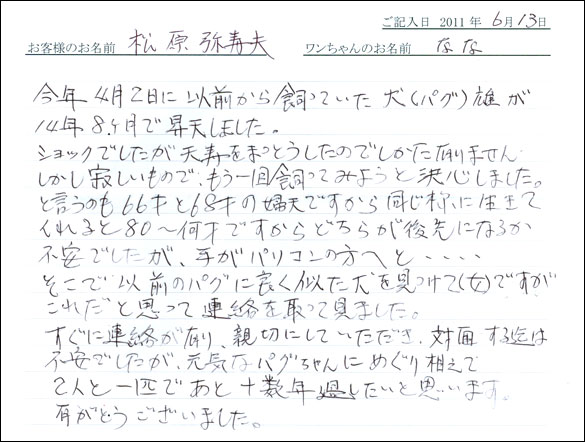 ご記入日 2011年 6月13日
お客様のお名前 松原弥寿夫 ワンちゃんのお名前 なな
今年4月2日に以前から飼っていた犬(パグ)雄が
14年8ヶ月で昇天しました。
ショックでしたが天寿をまっとうしたのでしかた有りません
しかし寂しいもので、もう一回飼ってみようと決心しました。
と言うのも66才と68才の夫婦ですから同じ様に生きて
くれると80〜何才ですからどちらが後先になるか
不安でしたが、手がパソコンの方へと・・・・
そこで以前のパグに良く似た犬を見つけて(女)ですが
これだと思って連絡を取って見ました。
すぐに連絡が有り、親切にしていただき、対面する迄は
不安でしたが、元気なパグちゃんにめぐり相えて
2人と一匹であと十数年過したいと思います。
有がとうございました。